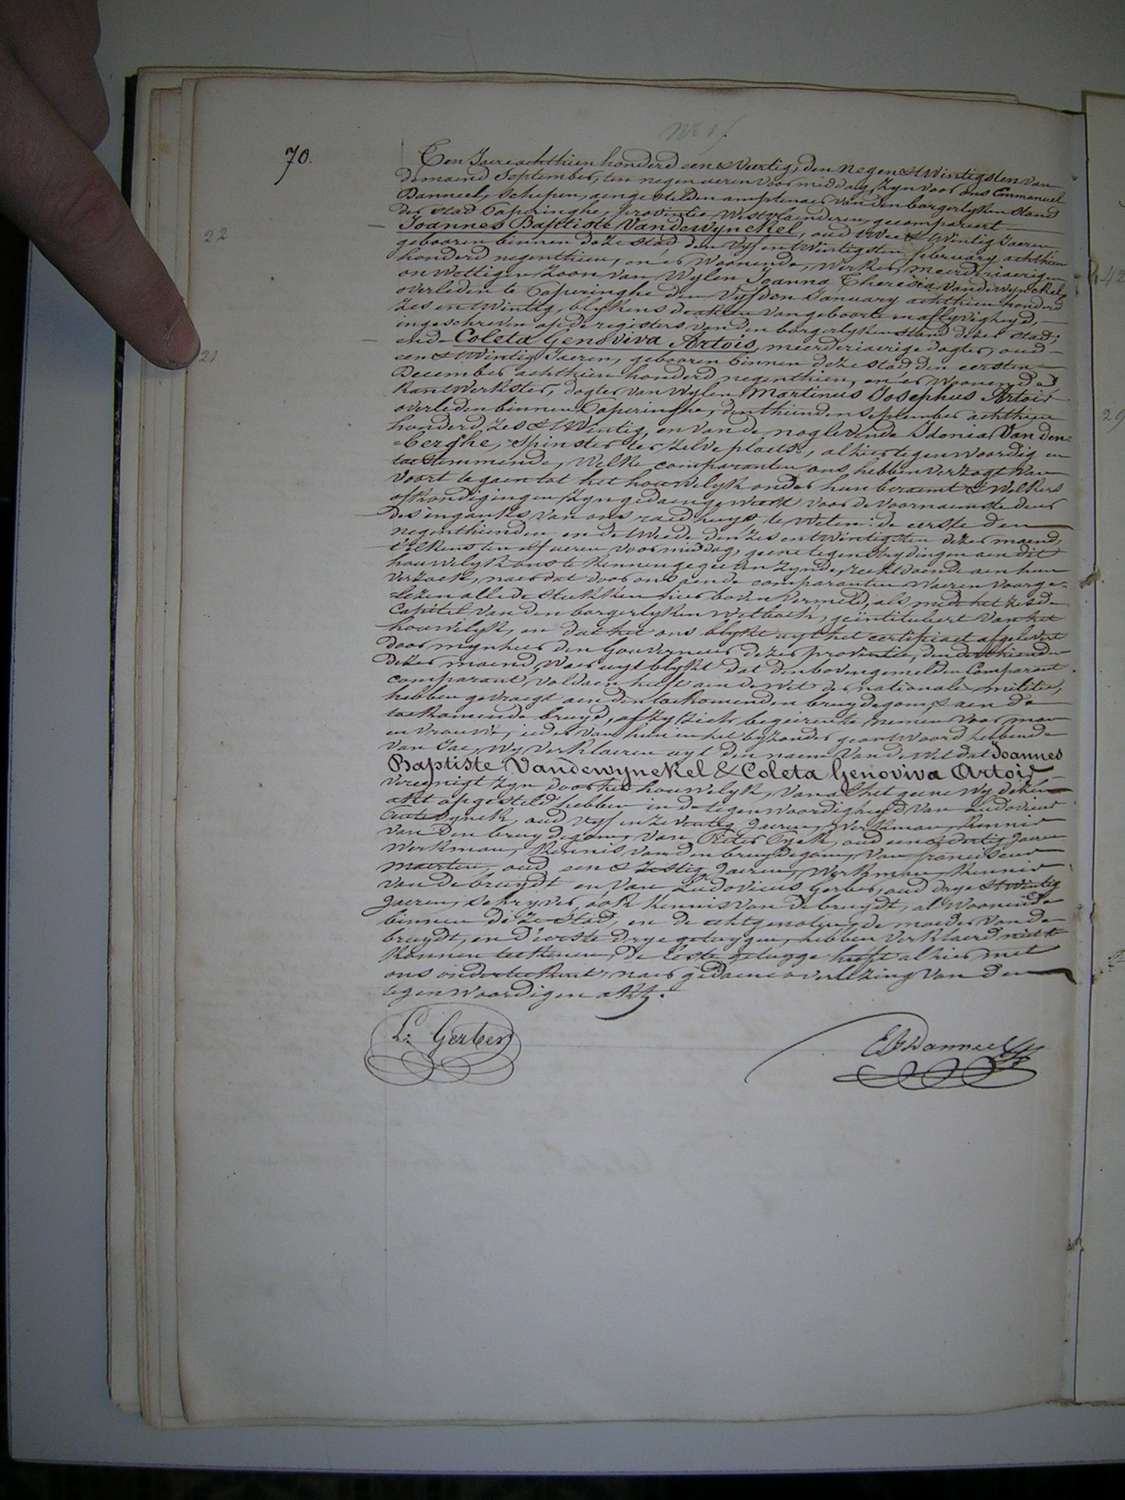 70.
Ten Jaere achthien honderd een & Veertig, den Negen & Twintigsten van
de maend September, ten negen ueren voormiddag, Zyn voor ons Emmanuel
Danneel, Schepen, aengestelden amptenaer van den borgerlyken Stand
der stad Poperinghe, provintie Westvlaenderen, gecompareert
22
Joannes Baptiste Vandewynckel, oud twee & twintig Jaeren
gebooren binnen deze stad den vyf en twintigsten february achthien
honderd negenthien, en er Woonende, Werker, meerderjaerigen
onwettigen Zoon van Wylen Joanna Theresia Vandewynckel
overleden te Poperinghe den Vyfden January achthien honderd
zes en twintig, blykens de akten van geboorte en aflyvigheyd,
ingeschreven op de registers van den borgerlyken stand dezer stad;
21
ende Coleta Genoviva Artois, meerderjaerige dogter, oud
een & twintig Jaeren, gebooren binnen deze stad den eersten
December achthien honderd negenthien, en er Woonende,
Kantwerkster, dogter van Wylen Martinus Josephus Artois
overleden binnen Poperinghe, den thienden September achthien
honderd zes & twintig, en van de nog levende Idonia Van den
Berghe, Spinster ter zelve plaets, alhier tegenwoordig en
toestemmende, Welke comparanten ons hebben verzogt van
voort te gaen tot het houwelyk onder hun beraemt & Welkers
afkondigingen zyn gedaen geweest voor de voornaemste deur
des ingangs van ons raedhuys, te Weten: de eerste den
negenthienden en de tweede den zes en twintigsten dezer maend,
telkens ten elf ueren voormiddag, geene tegenstrydingen aen dit
houwelyk ons te kennen gegeven zynde, recht doende aen hun
verzoek, naer dat door ons aende comparanten Waeren voorge-
lezen alle de stukken hier boven vermeld, als mede het zesde
Capitel van den borgerlyken Wetboek, geïntituleert van het
houwelyk, en dat het ons blykt uyt het certificaet afgelevert
door mynheer den Gouverneur dezer provintie, den derthienden
dezer maend, Waer uyt blykt dat den bovengemelden Comparant
comparant voldaen heeft aen de Wet der nationale militie,
hebben gevraegt aen den toekomenden bruydegom & aen de
toekomende bruyd, of zy zich begeerente nemen voor man
en vrouwe, ieder van hun en het byzonder geantwoord hebbende
van Jae, Wy verklaeren uyt den naem van de Wet dat Joannes
Baptiste Vandewynckel & Coleta Genoviva Artois
vereenigt zyn door het houwelyk, van al het geene wy dezen
akt opgesteld hebben in de tegenwoordigheyd van Ludovicus
oud vyf en zeventig Jaeren, Werkman, Kennis
van den bruydegom, van Pieter Cyck, oud een & dertig Jaeren
Werkman, Kennis van den bruydegom, van Franciscus
Maerten, oud een & zestig Jaeren, Werkman, Kennis
van de bruydt en van Ludovicus Gerbes, oud drye & twintig
Jaeren, Schryver, ook Kennis van de bruydt, al Woonende
binnen deze stad, en de echtgenoten, de moeder van de
bruydt, en d'eerste drye getuygen, hebben verklaerd niet te
konnen teekenen, de leste getuyge heeft alhier met
ons onderteekent, naer gedaene overlezing van den
tegenwoordigen akt.
L: Gerbes
E. Danneel